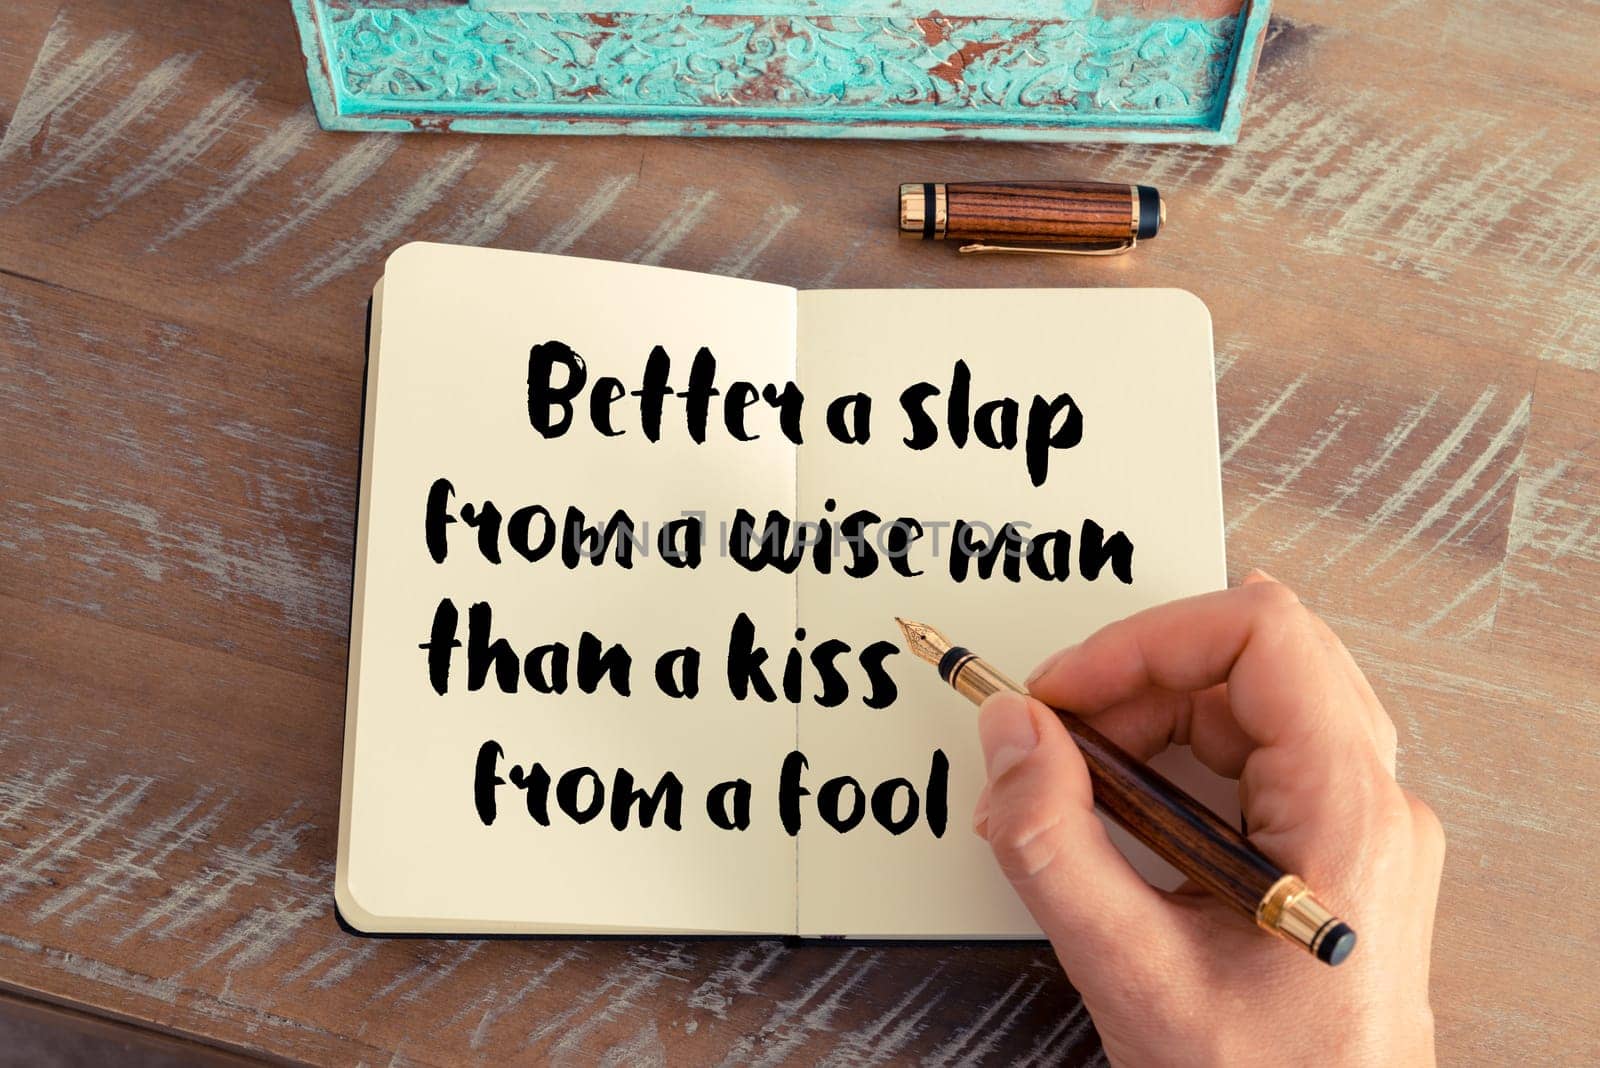 Better a slap
from a wise man
than a kiss
from a fool
UNLIMPHOTOS